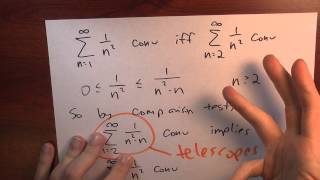 ∞ ∑ n=1 1/n² conv iff ∞ ∑ n=2 1/n² conv
0 ≤ 1/n² ≤ 1/(n²-n) n ≥ 2
So by comparison test,
∞ ∑ n=2 1/(n²-n) conv implies
telescopes
∞ 1/n² conv